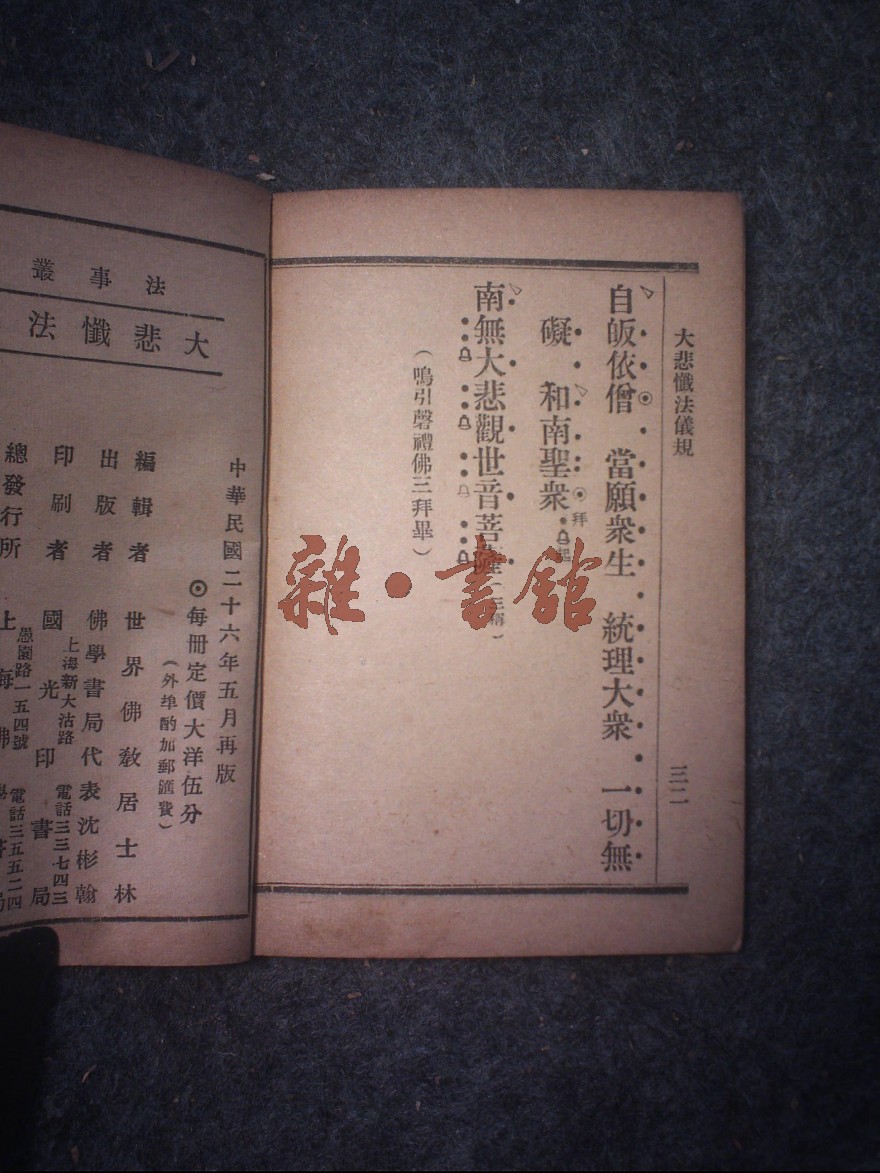 大悲懺法儀規
三二
自皈依僧　當願衆生　統理大衆　一切無
礙　和南聖衆
拜
起
南無大悲觀世音菩薩（三稱）
（鳴引磬禮佛三拜畢）
雜·書館
法事叢
大悲懺法
中華民國二十六年五月再版
⊙每冊定價大洋伍分
（外埠酌加郵匯費）
編輯者　世界佛教居士林
出版者　佛學書局代表沈彬翰
上海新大沽路　電話三三七四三
印刷者　國光印書局
愚園路一五四號　電話三五五二四
總發行所　上海佛學書局